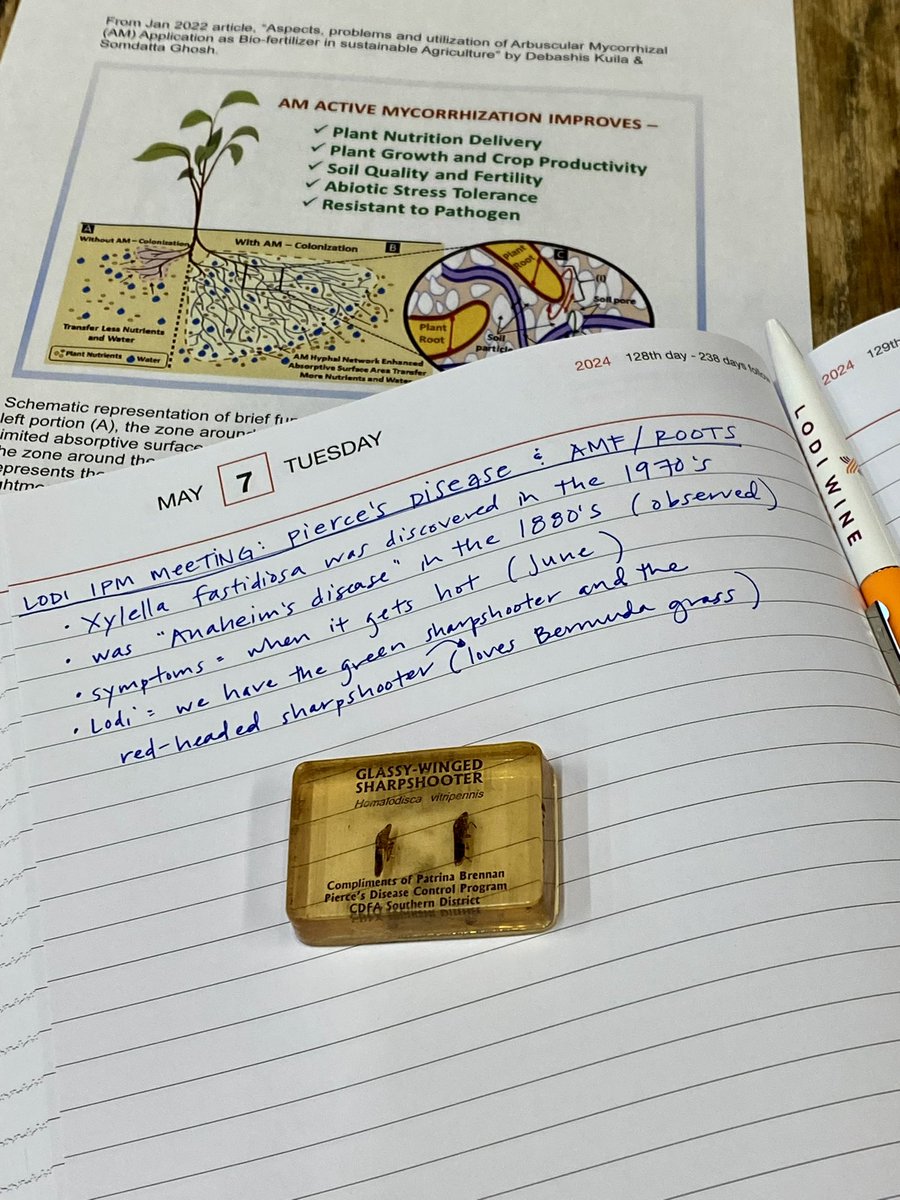 From Jan 2022 article, "Aspects, problems and utilization of Arbuscular Mycorrhizal
(AM) Application as Bio-fertilizer in sustainable Agriculture" by Debashis Kuila &
Somdatta Ghosh.
AM ACTIVE MYCORRHIZATION IMPROVES –
✓ Plant Nutrition Delivery
✓ Plant Growth and Crop Productivity
✓ Soil Quality and Fertility
✓ Abiotic Stress Tolerance
✓ Resistant to Pathogen
A
Without AM – Colonization
With AM – Colonization
B
C
Plant
Root
(i)
Soil pore
Plant
Root
Soil
particle
Transfer Less Nutrients
and Water
Plant Nutrients
Water
AM Hyphal Network Enhanced
Absorptive Surface Area Transfer
More Nutrients and Water
Schematic representation of brief
left portion (A), the zone around
limited absorptive surface
the zone around the
2024 128th day - 238 days
2024 129th
MAY 7 TUESDAY
LODI IPM MEETING: PIERCE'S DISEASE & AMF/ROOTS
• Xylella fastidiosa was discovered in the 1970's
• was "Anaheim's disease" in the 1880's (observed)
• symptoms = when it gets hot (June)
• Lodi = we have the green sharpshooter and the
red-headed sharpshooter (loves Bermuda grass)
LODI WINE
GLASSY-WINGED
SHARPSHOOTER
Homalodisca vitripennis
Compliments of Patrina Brennan
Pierce's Disease Control Program
CDFA Southern District